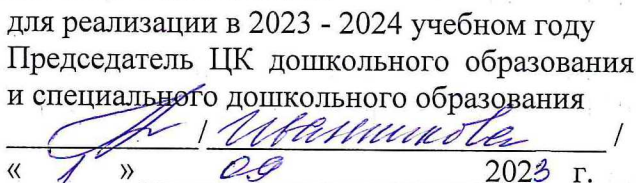 для реализации в 2023 - 2024 учебном году
Председатель ЦК дошкольного образования
и специального дошкольного образования
/ Иванникова /
« 1 » 09 2023 г.